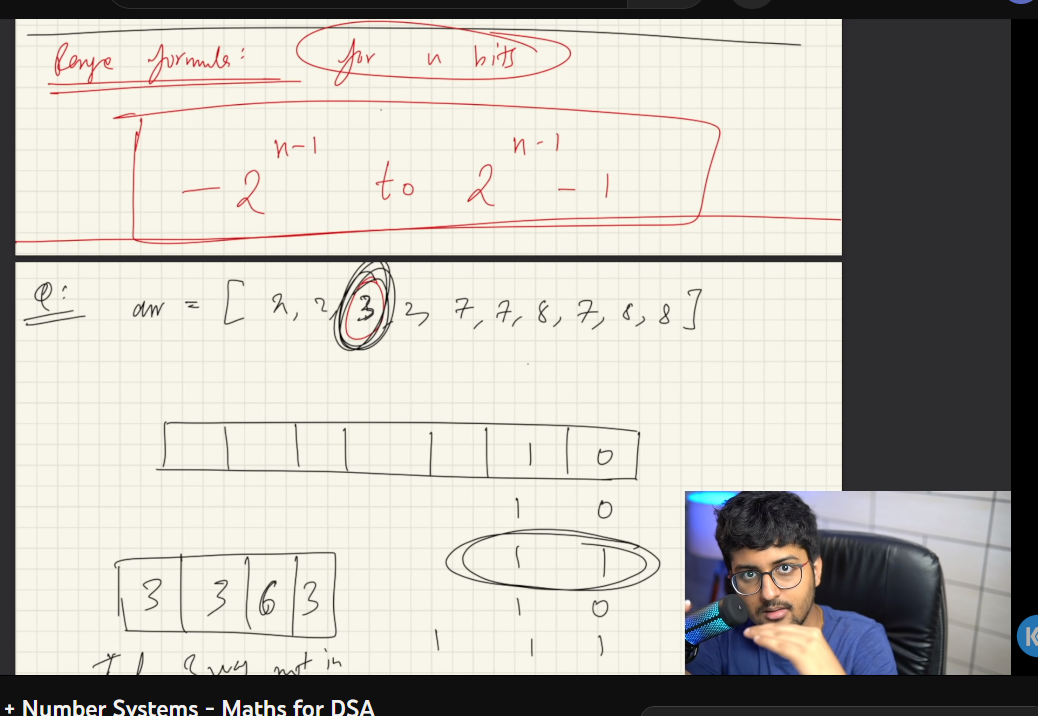 Range formula: for n bits
- 2^(n-1) to 2^(n-1) - 1
Q: arr = [ 2, 2, 3, 2, 7, 7, 8, 7, 8, 8 ]
1 0
1 0
1 1
3 3 6 3
1 0
1 1 1
If 3 was not in
+ Number Systems - Maths for DSA